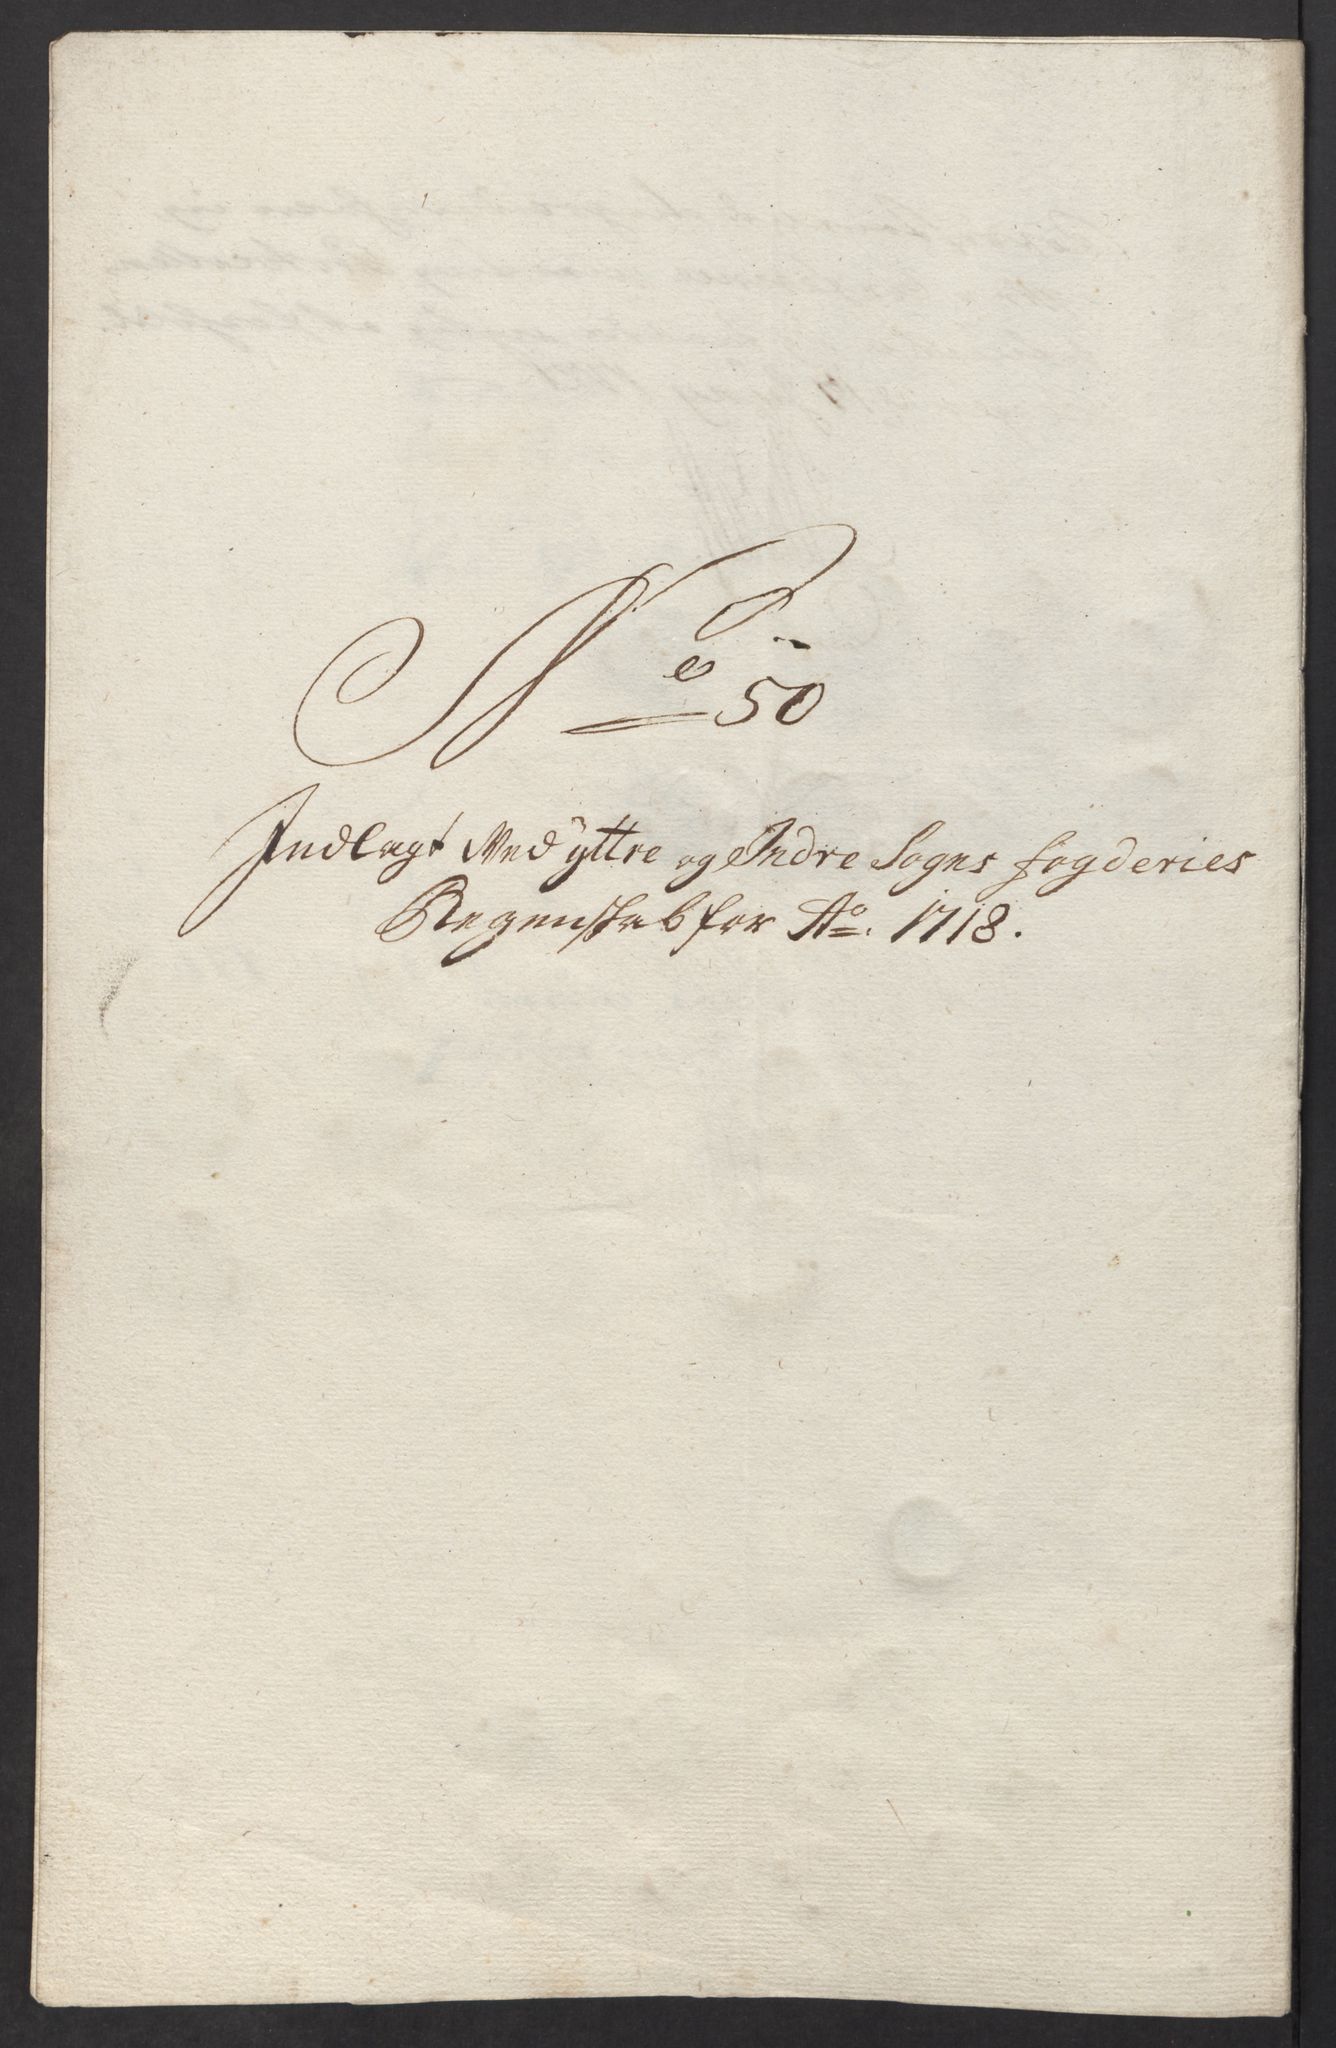 No 50
Indlagt Ved ÿttre og Indre Sogns fogderies
Regenskab for Ao. 1718.